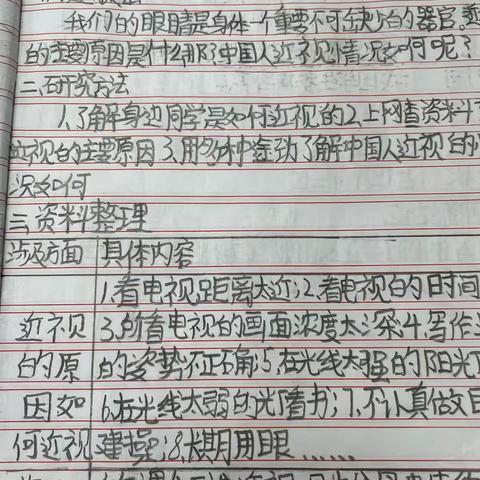 我们的眼睛是身体一个重要不可缺少的器官,
的主要原因是什么那?中国人近视情况如何呢?
二、研究方法
1.了解身边同学是如何近视的2.上网查资料了
近视的主要原因3.用多种途劲了解中国人近视的
况如何
三、资料整理
涉及方面 具体内容
1.看电视距离太近;2.看电视的日时间
近视 3.所看电视的画面浓度太深;4.写作业
的原 的姿势不正确;5.在光线太强的阳光
因如 6.在光线太弱的光看书;7.不认真做
何近视 8.长期用眼……